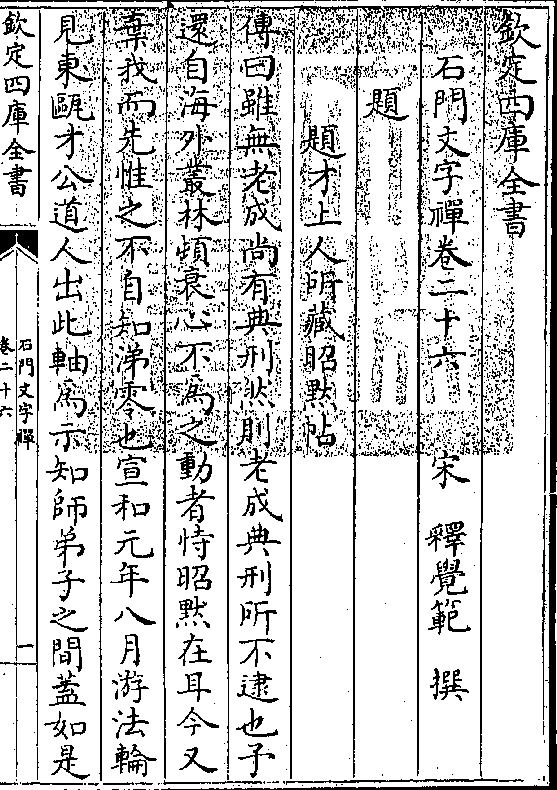 欽定四庫全書
石門文字禪卷二十六　宋　釋覺範　撰
題
題才上人所藏昭默帖
傳曰雖無老成尚有典刑然則老成典刑所不逮也予
還自海外叢林頓衰心不為之動者恃昭默在耳今又
棄我而先惟之不自知涕零也宣和元年八月游法輪
見東甌才公道人出此軸為示知師弟子之間蓋如是
欽定四庫全書
石門文字禪
卷二十六
一